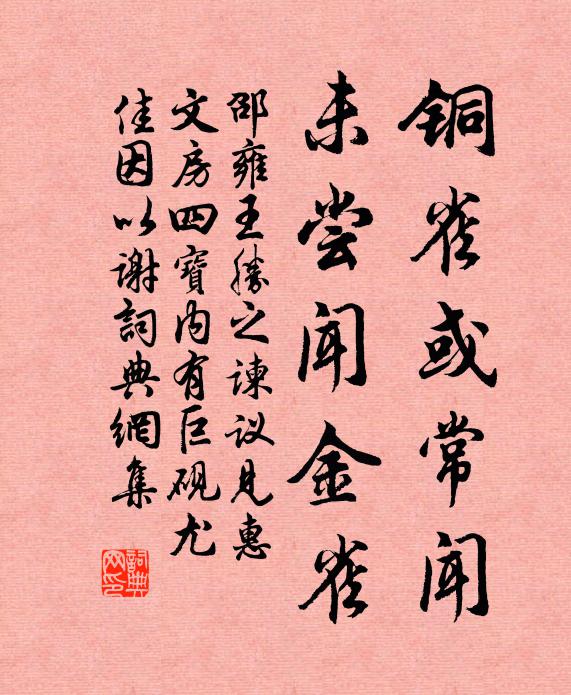 铜雀或常闻
未尝闻金雀
邵雍王胜之谏议见惠
文房四寳内有巨砚尤
佳因以谢詞典網集
詞典网印